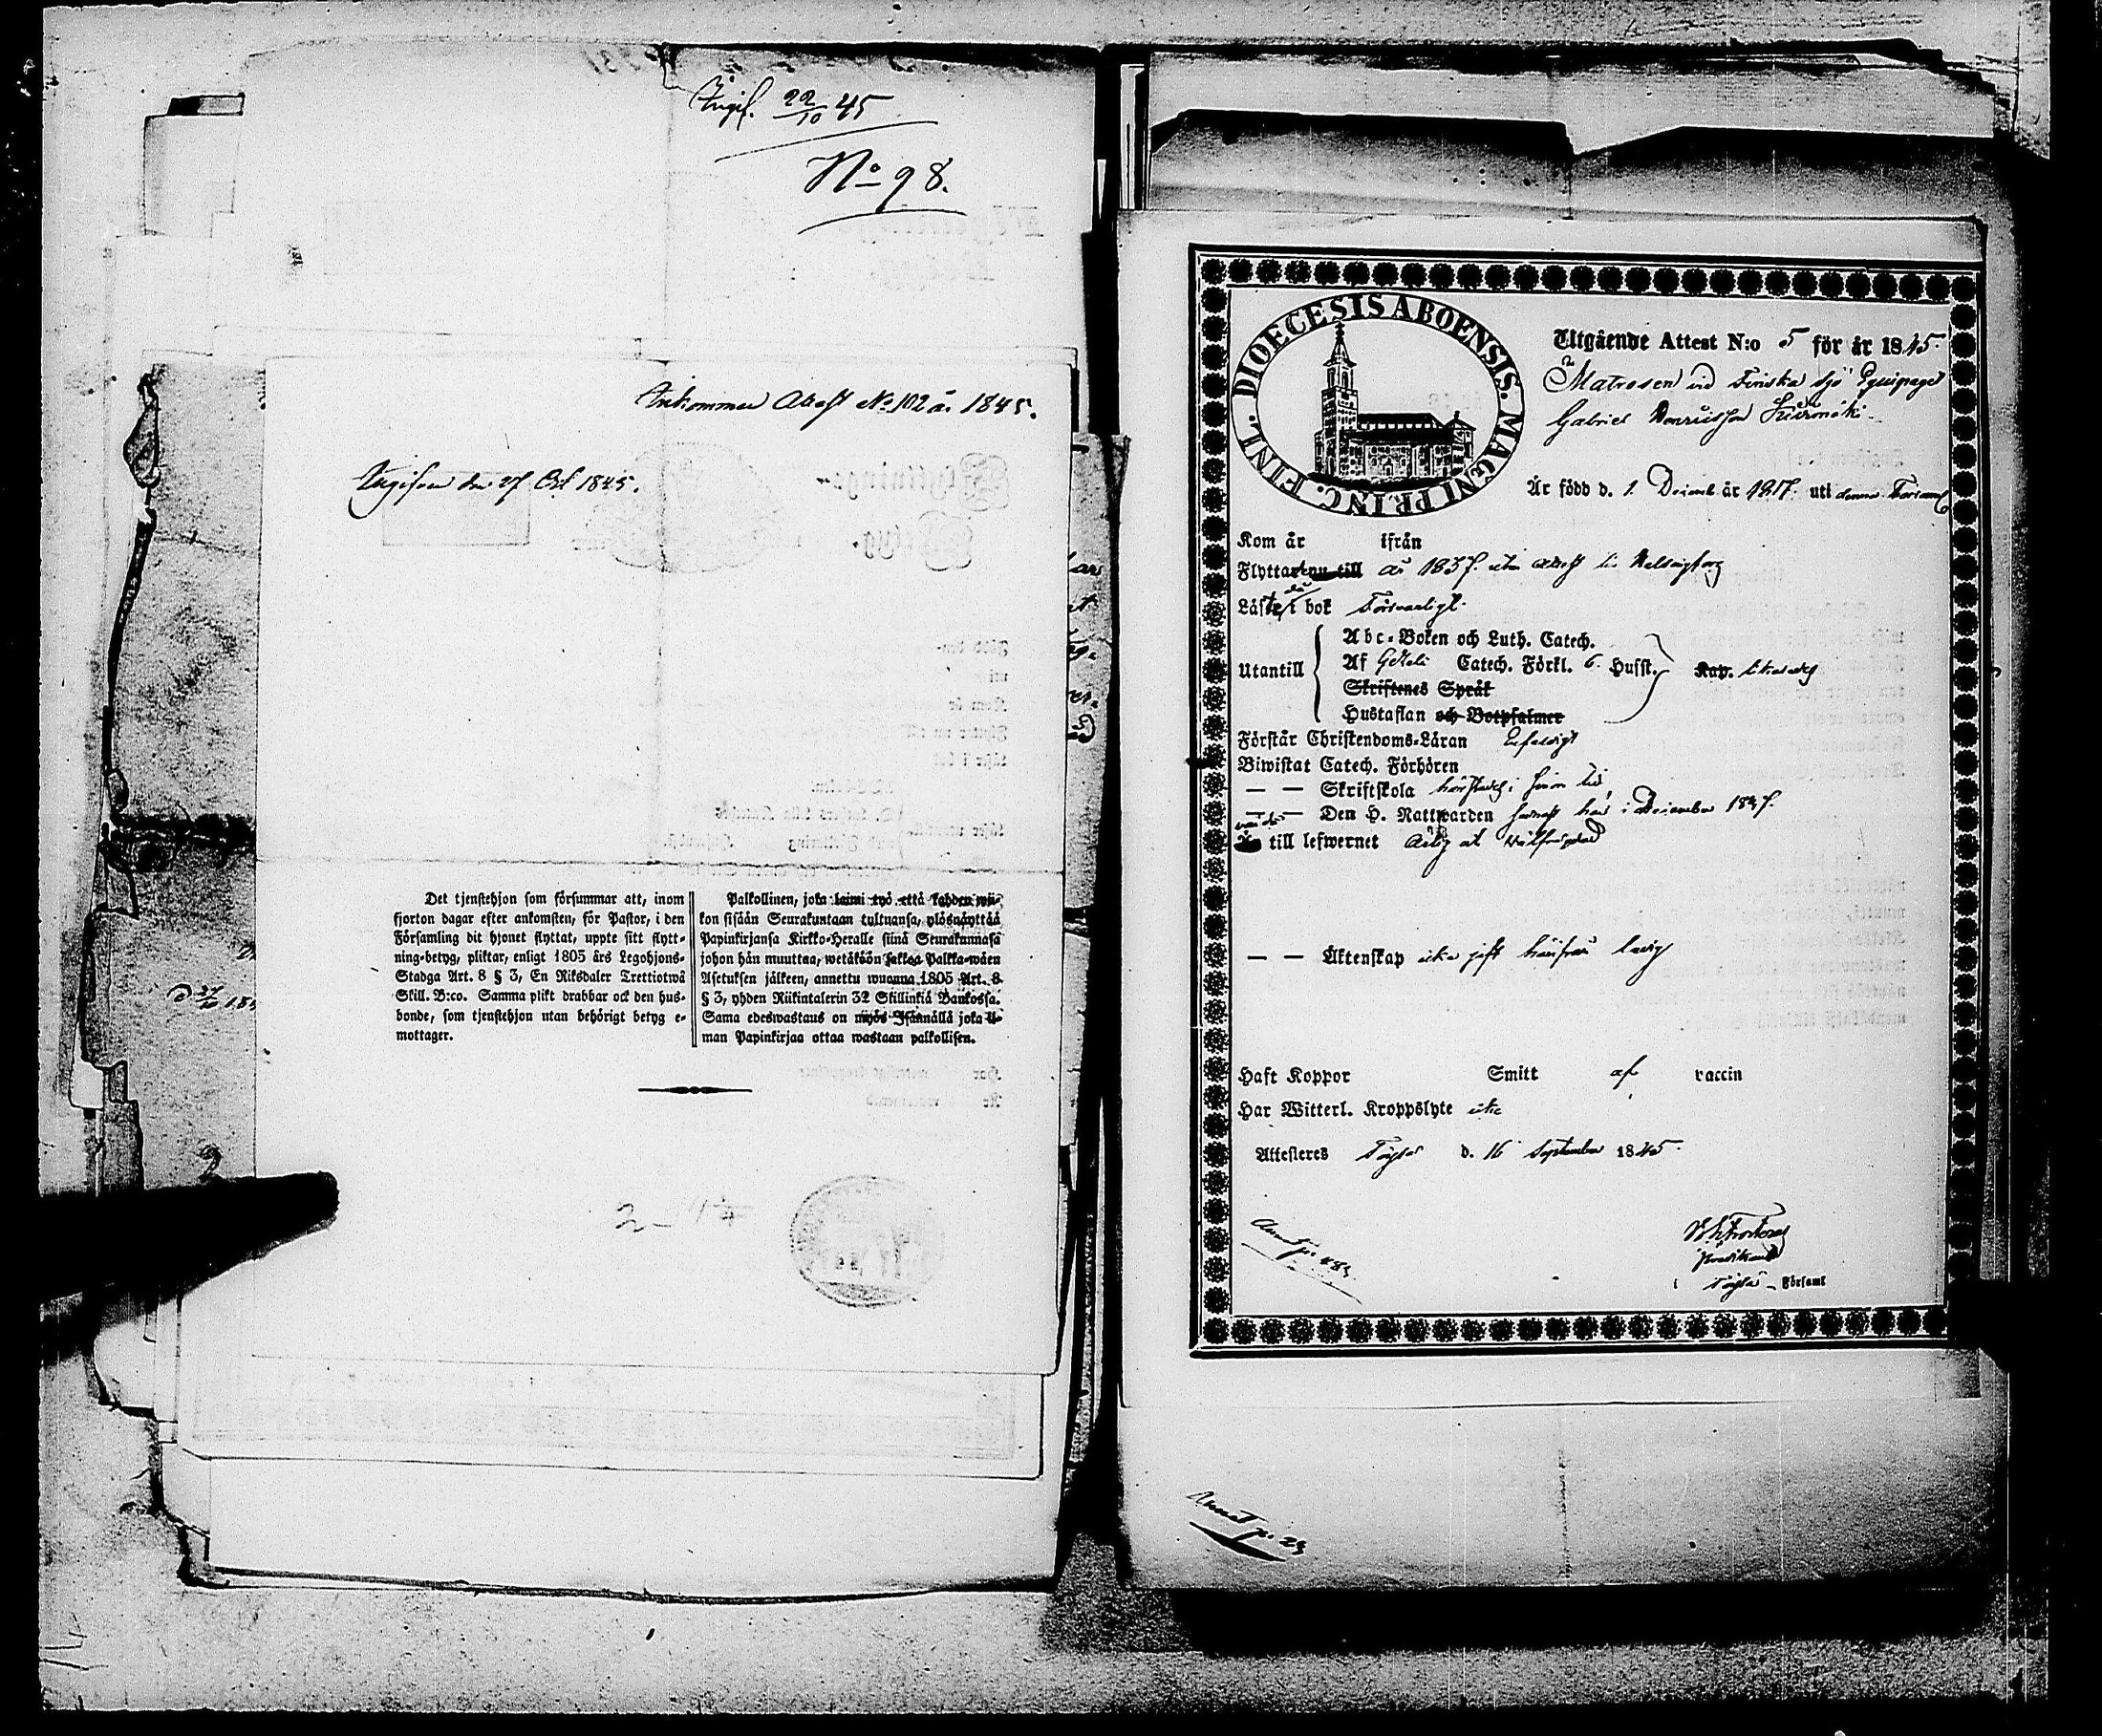 Angif. 22/10 45
No 98.
Ankommen Attest No 102 år 1845.
Angifven den 27 Oct 1845.
Det tjenstehjon som försummar att, inom
fjorton dagar efter ankomsten, för Pastor, i den
Församling dit hjonet flyttat, uppte sitt flytt-
ning-betyg, pliktar, enligt 1805 års Legohjons-
Stadga Art. 8 § 3, En Riksdaler Trettiotwå
Skill. B:co. Samma plikt drabbar ock den hus-
bonde, som tjenstehjon utan behörigt betyg e-
mottager.
Palkollinen, joka laimi lyö että kahden wii-
kon sisään Seurakuntaan tultuansa, ylösnäyttää
Papinkirjansa Kirkko-Heralle siinä Seurakunnasa
johon hän muuttaa, wetäköön sakkoa Palkka-wäen
Asetuksen jälkeen, annettu wuonna 1805 Art. 8
§ 3, yhden Riikintalerin 32 Skillinkiä Bankossa.
Sama edeswastaus on myös Isännällä joka il-
man Papinkirjaa ottaa wastaan palkollisen.
DIOECESIS ABOENSIS. MAGNI PRINC. FINL.
Utgående Attest N:o 5 för år 1845.
Matrosen vid Finska Sjö Equipaget
Gabriel
Är född d. 1. Decemb. år 1817. uti denna Församl
Kom år ifrån
Flyttar nu till år 1837. utan attest till Helsingfors
Läste då i bok Försvarligt
Utantill
Abc-Boken och Luth. Catech.
Af Catech. Förkl. 6. Husst.
Skriftenes Språk
Hustaflan och Botpsalmer
Kap.
Förstår Christendoms-Läran Enfaldigt
Biwistat Catech. Förhören
— — Skriftskola i sinom tid
— — Den H. Nattwarden här i December 1837.
till lefwernet ärlig och
— — Äktenskap icke gift härifrån ledig
Haft Koppor Smitt af vaccin
Har Witterl. Kroppslyte icke
Attesteres d. 16 September 1845.
Annot p. 483
i Församl
Annot p. 23